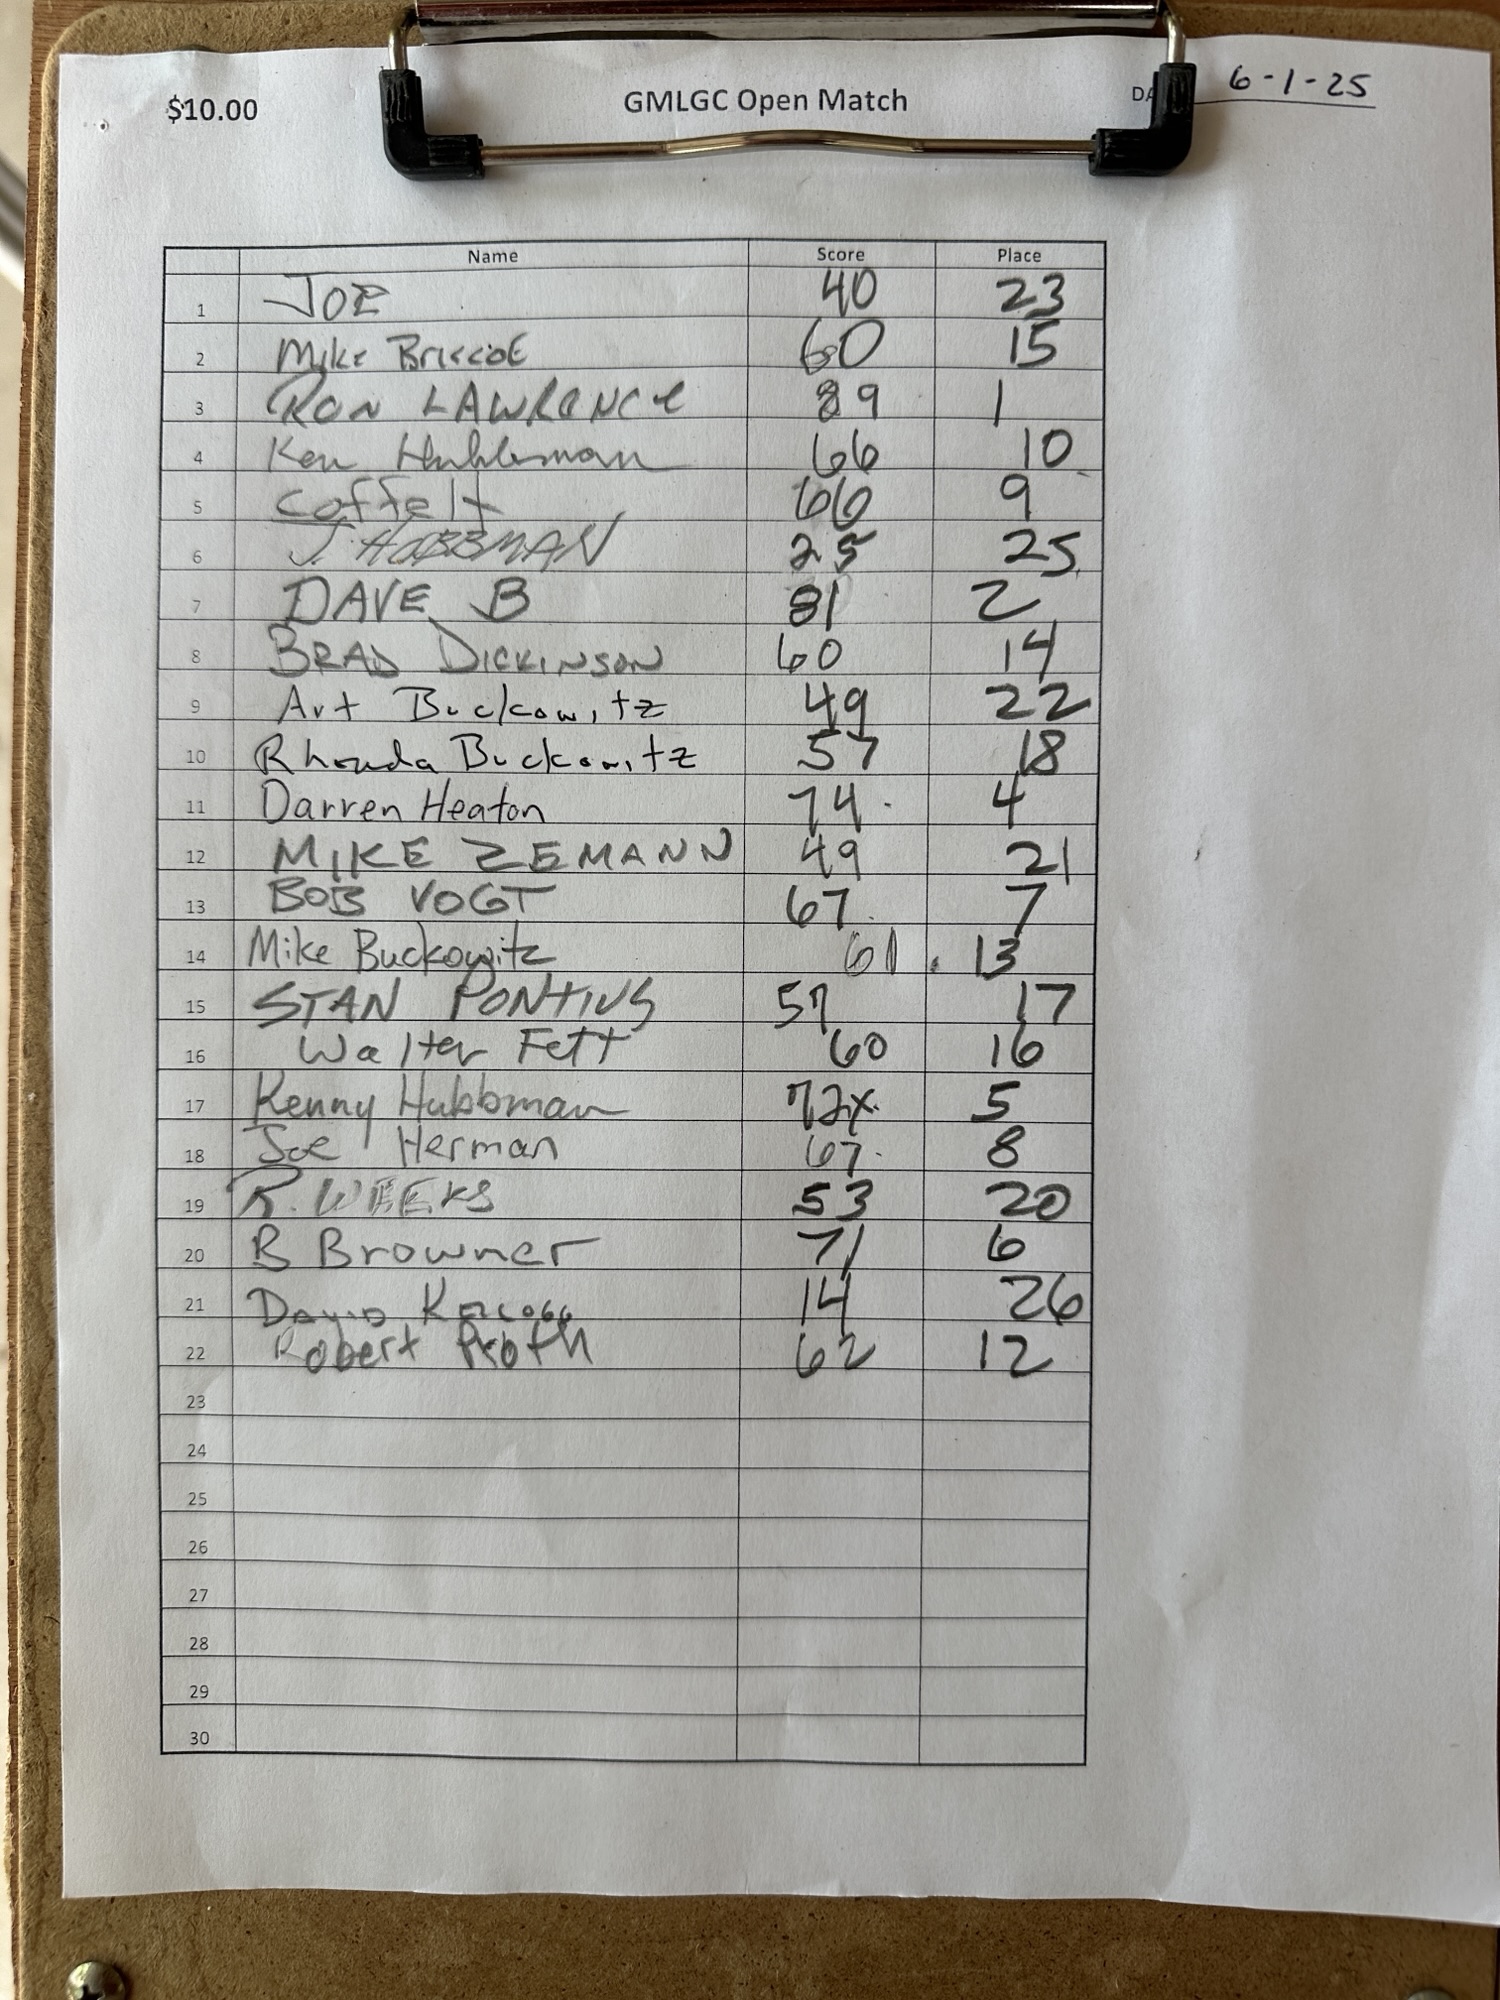 $10.00 GMLGC Open Match DA 6-1-25
Name Score Place
1 JOE 40 23
2 Mike Briscoe 60 15
3 RON LAWRENCE 89 1
4 Ken Hubbman 66 10
5 Coffelt 66 9
6 J. HUBBMAN 25 25
7 DAVE B 81 2
8 BRAD DICKINSON 60 14
9 Art Buckowitz 49 22
10 Rhonda Buckowitz 57 18
11 Darren Heaton 74 4
12 MIKE ZEMANN 49 21
13 BOB VOGT 67 7
14 Mike Buckowitz 61 13
15 STAN PONTIUS 57 17
16 Walter Fett 60 16
17 Kenny Hubbman 72x 5
18 Joe Herman 67 8
19 R. WEEKS 53 20
20 B Browner 71 6
21 David 14 26
22 Robert Proth 62 12
23
24
25
26
27
28
29
30